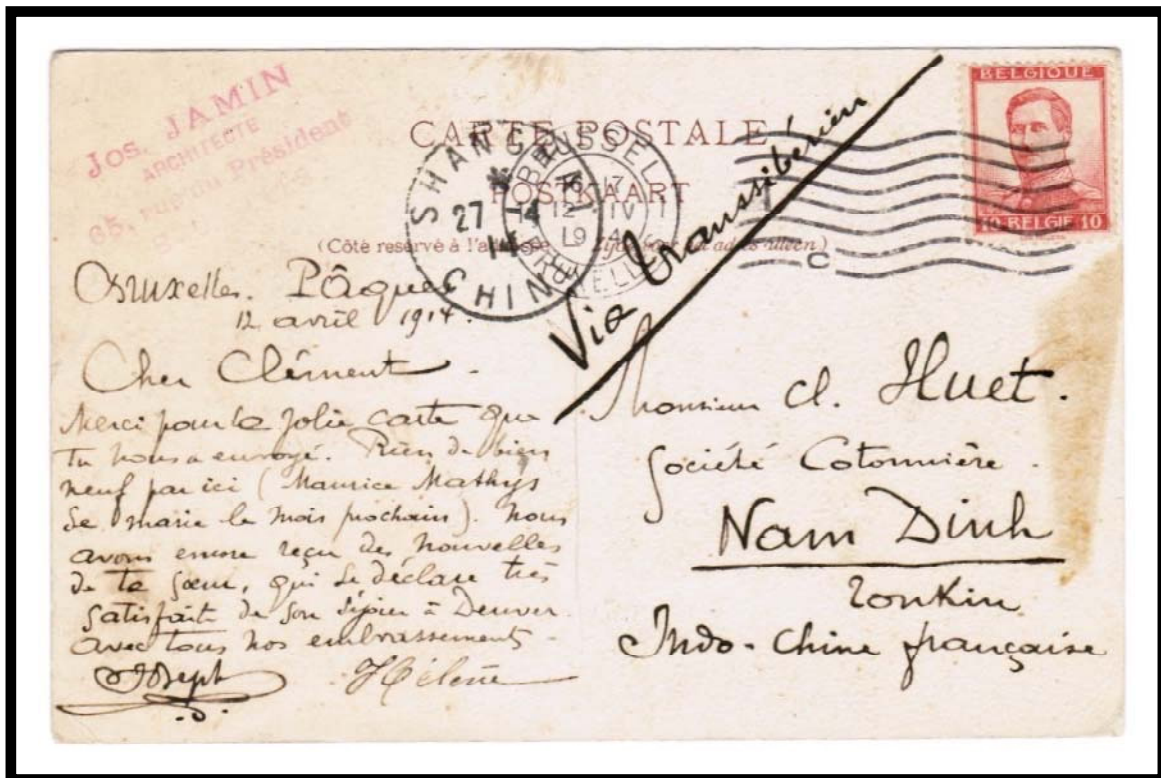 Jos. JAMIN
ARCHITECTE
65, rue du Président
CARTE POSTALE
POSTKAART
(Côté reservé à l'adresse Zijde voor het adres alleen)
SHANGHAI
27 4
14
CHINE
BRUSSEL 1
16 17
12 IV
19 14
BRUXELLES 1
C
Via transsibérien
BELGIQUE
10 BELGIE 10
Bruxelles. Pâques
12 avril 1914.
Cher Clément.
Merci pour la jolie carte que
tu nous a envoyé. Rien de bien
neuf par ici (Maurice Mathys
se marie le mois prochain). Nous
avons encore reçu des nouvelles
de ta sœur, qui se déclare très
satisfaite de son séjour à Denver.
avec tous nos embrassements -
Joseph Hélène
Monsieur Cl. Huet.
Société Cotonnière.
Nam Dinh
Tonkin
Indo-Chine française